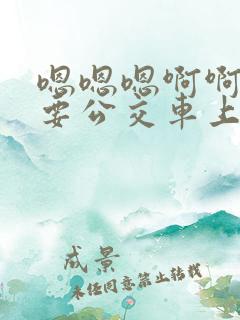 嗯嗯嗯啊啊
要公交車上
成景
未经同意禁止转载